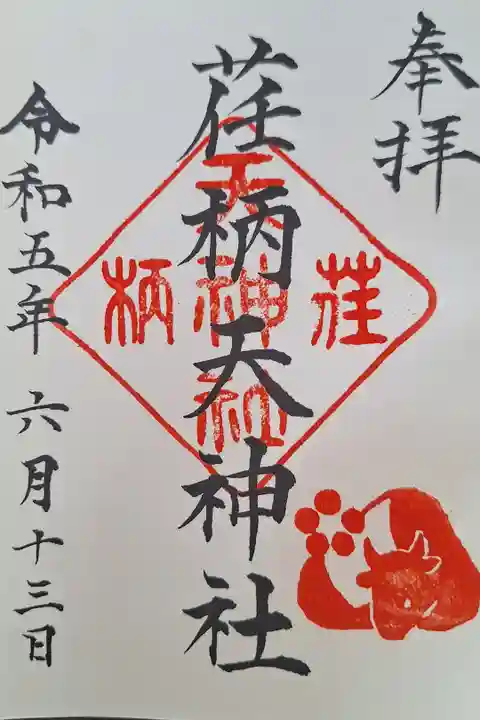 奉拝
荏柄天神社
荏
天神社
柄
令和五年 六月十三日